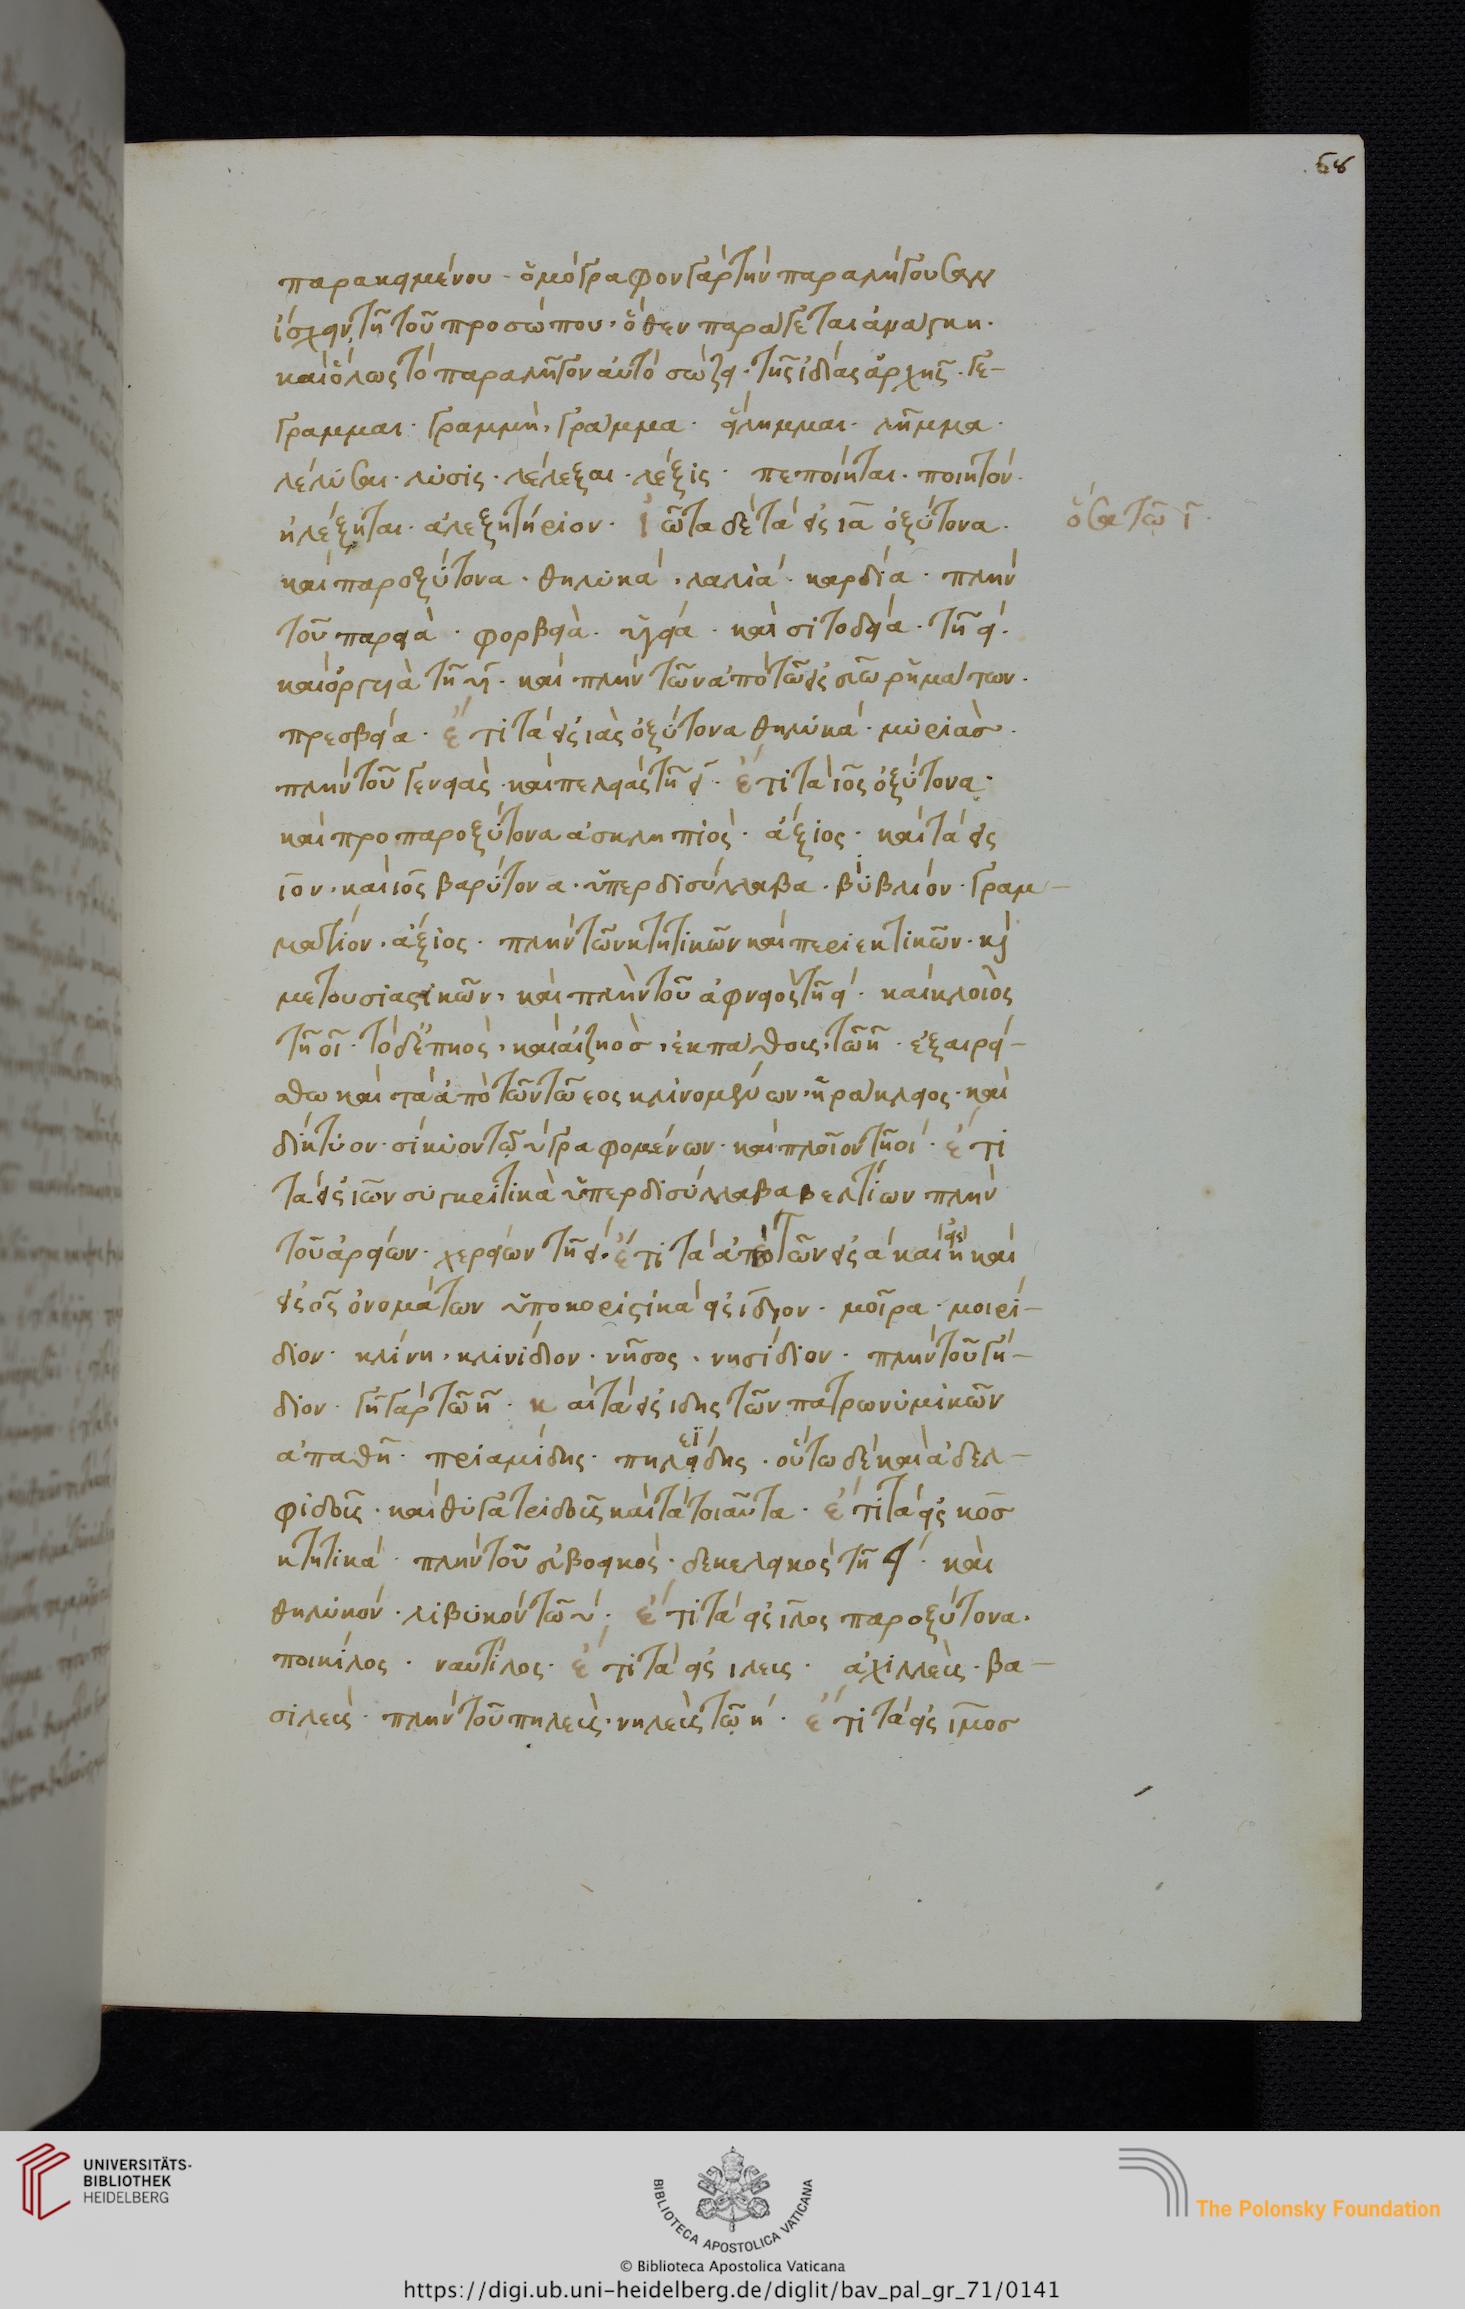 68
παρακειμένου· ὁμόγραφον γὰρ τὴν παραλήγουσαν
ἴσχειν τῆ τοῦ προσώπου, ὅθεν παράγεται ἀνάγκη·
καὶ ὅλως τὸ παραλῆγον αὐτὸ σώζει τῆς ἰδίας ἀρχῆς· γέ-
γραμμαι· γραμμὴ, γράμμα· εἴλημμαι· λῆμμα·
λέλυσαι· λύσις· λέλεξαι· λέξις· πεποίηται· ποιητόν·
ἠλέξηται· ἀλεξητήριον· ἰῶτα δὲ τὰ εἰς ια ὀξύτονα·
ὅσα τῶ ι
καὶ παροξύτονα· θηλυκά· λαλιά· καρδία· πλὴν
τοῦ παρειὰ· φορβειὰ· ὑγεία· καὶ σιτοδεία· τῆ ει·
καὶ ὀργυιὰ τῆ υι· καὶ πλὴν τῶν ἀπὸ τῶν εἰς εύω ῥημάτων·
πρεσβεία· ἔτι τὰ εἰς ιὰς ὀξύτονα θηλυκά· μυριὰς·
πλὴν τοῦ γενειὰς· καὶ πελειὰς τῆ ει· ἔτι τὰ ιος ὀξύτονα·
καὶ προπαροξύτονα ἀσκληπιὸς· ἄξιος· καὶ τὰ εἰς
ιον· καὶ ιος βαρύτονα· ὑπερδισύλλαβα· βύβλιον· γραμ-
μάτιον· ἄξιος· πλὴν τῶν κτητικῶν καὶ περιεκτικῶν· καὶ
μετουσιαστικῶν, καὶ πλὴν τοῦ ἀφνειὸς τῆ ει· καὶ κλοιὸς
τῆ οι· τὸ δέπηος, καὶ αἰζηὸς, ἐκπάθους, τῶ η· ἐξαιρεί-
σθω καὶ τὰ ἀπὸ τῶν τῶ εος κλινομένων, ἡράκλειος· καὶ
δίκτυον· σίκυον τῶ υ γραφομένων· καὶ πλοῖον τῆ οι· ἔτι
τὰ εἰς ιων συγκριτικὰ ὑπερδισύλλαβα βελτίων πλὴν
τοῦ ἀρείων· χερείων τῆ ει· ἔτι τὰ ἀπὸ τῶν εἰς α καὶ εἰς η καὶ
εἰς ος ὀνομάτων ὑποκοριστικὰ εἰς ιδιον· μοῖρα· μοιρί-
διον· κλίνη, κλινίδιον· νῆσος, νησίδιον· πλὴν τοῦ γή-
διον· γῆ γὰρ τῶ η· καὶ τὰ εἰς ιδης τῶν πατρωνυμικῶν
ἀπαθῆ· πριαμίδης· πηλείδης· οὕτω δὲ καὶ ἀδελ-
φιδοῦς· καὶ θυγατριδοῦς καὶ τὰ τοιαῦτα· ἔτι τὰ εἰς κος
κτητικά· πλὴν τοῦ εὐβοεικὸς· δεκελεικὸς τῆ ει· καὶ
θηλυκόν· λιβυκὸν τῶ υ· ἔτι τὰ εἰς ιλος παροξύτονα·
ποικίλος· ναυτίλος· ἔτι τὰ εἰς ιλευς· ἀχιλλεὺς· βα-
σιλεὺς· πλὴν τοῦ πηλεὺς· νηλεὺς τῶ η· ἔτι τὰ εἰς ιμος
UNIVERSITÄTS-
BIBLIOTHEK
HEIDELBERG
BIBLIOTECA APOSTOLICA VATICANA
The Polonsky Foundation
© Biblioteca Apostolica Vaticana
https://digi.ub.uni-heidelberg.de/diglit/bav_pal_gr_71/0141